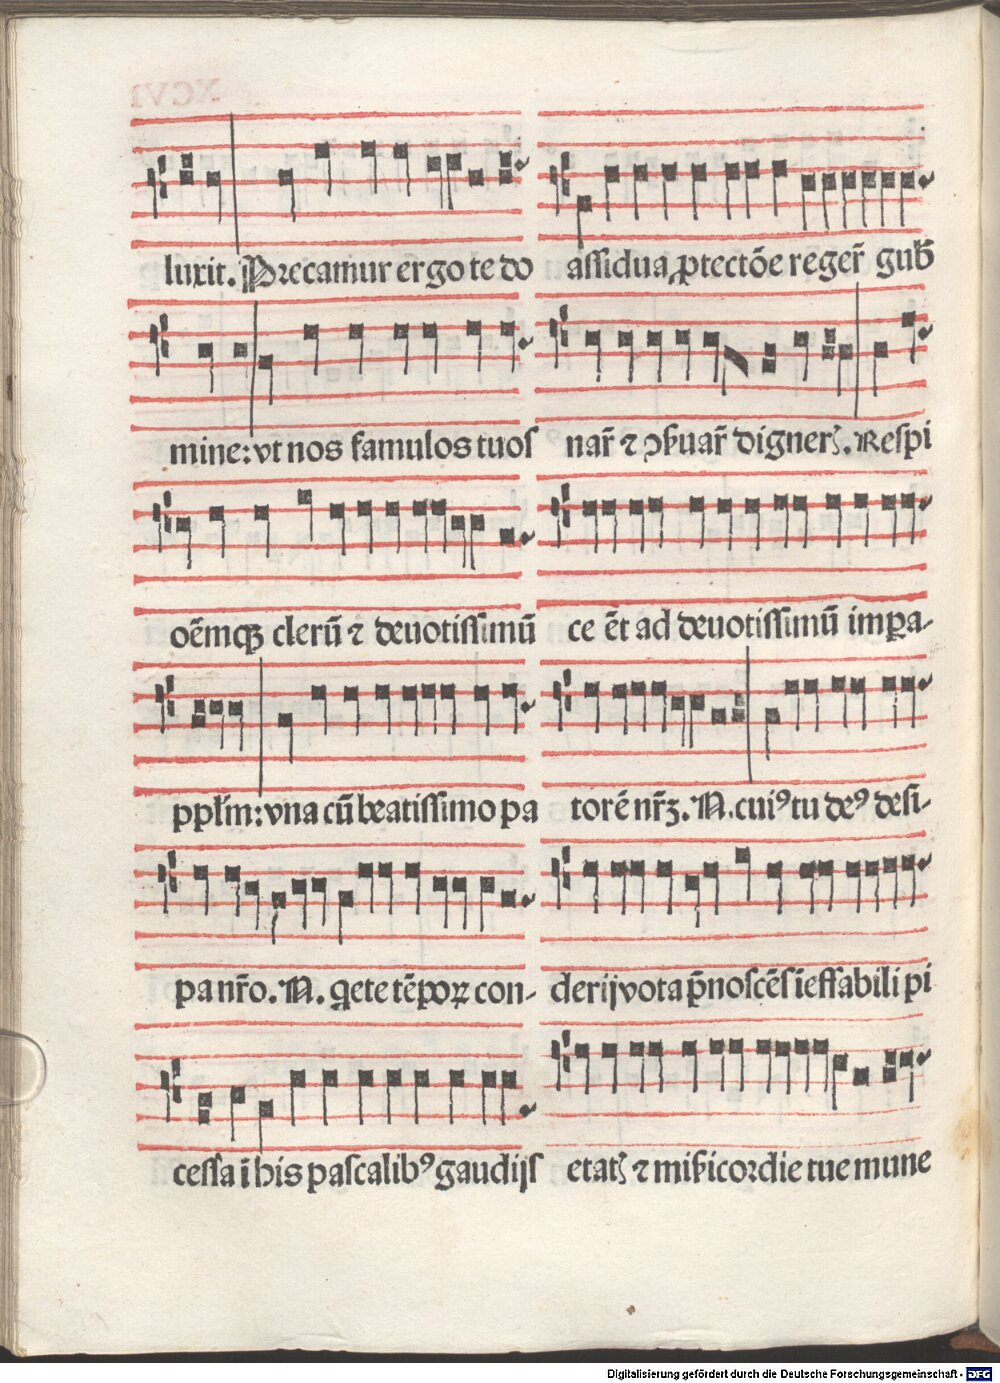 luxit. Precamur ergo te do
mine: vt nos famulos tuos
oēmqꝫ clerū ⁊ deuotissimū
ppl'm: vna cū beatissimo pa
pa nr̄o. N. q̄ete tēpoꝝ con-
cessa ī his pascalibꝰ gaudijs
assidua ꝓtectōe reger̄ gub̄
nar̄ ⁊ ↄẜuar̄ dignerꝭ. Respi
ce ēt ad deuotissimū imꝑa-
torē nr̄ꝫ. N. cuiꝰ tu deꝰ desi-
derij vota p̄noscēs īeffabili pi
etatꝭ ⁊ miẜicordie tue mune
Digitalisierung gefördert durch die Deutsche Forschungsgemeinschaft - DFG